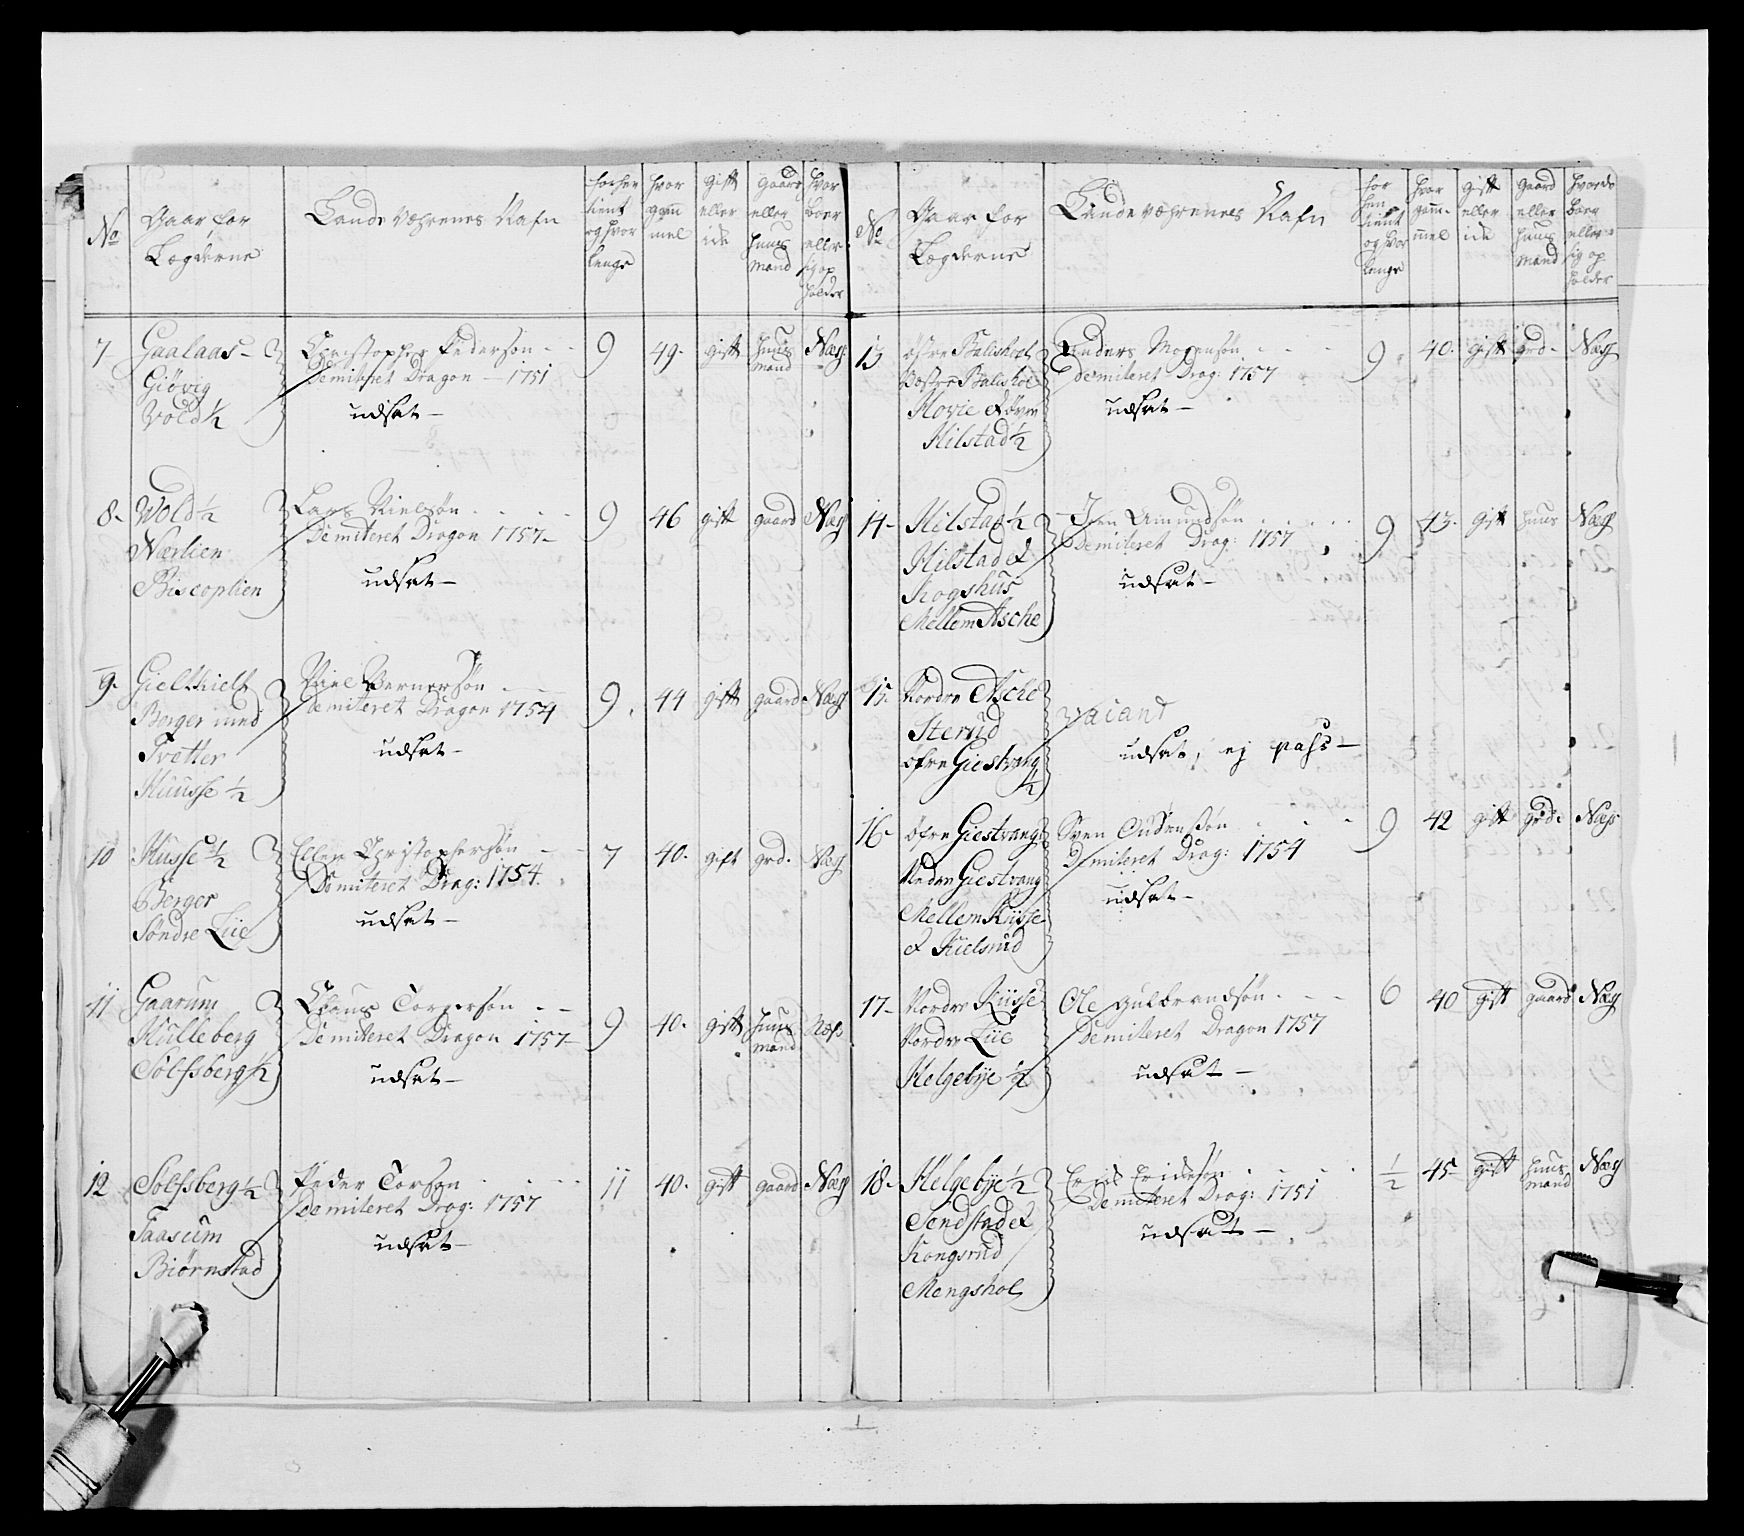 No
Gaar for
Lægderne
Lande Væhrenes Nafn
forhen
tient
og hvor
lenge
hvor
gam
mel
gift
eller
ide
gaard
eller
huus
mand
hvor
boer
eller
sig op
holder
7
Gaalaas
Giövig
Vold ½
Christopher Pedersøn
Demiteret Dragon 1751
udsat
9
49.
gift
huus
mand
Næs
8.
Wold ½
Nærlien
Biscoplien
Lars Nielsøn
Demiteret Dragon 1757
udsat
9
46
gift
gaard
Næs
9.
Gielskield
Berger med
Tretter
Huusse ½
Niel Bernersön
Demiteret Dragon 1754
udsat
9.
44
gift
gaard
Næs
10
Husse ½
Berger
Søndre Lie
Christophersön
Demiteret Drag: 1754.
udsat
7
40.
gift
grd.
Næs
11
Gaarum
Hulleberg
Solfsberg ½
Claus Torgersøn
Demiteret Dragon 1757
udsat
9
40.
gift
huus
mand
Næs
12
Solfsberg ½
Faasum
Biørnstad
Peder Torsøn
Demiteret Drag: 1757
udsat
11
40.
gift
gaard
Næs
No
Gaar for
Lægderne
Lande Væhrenes Nafn
for
hen
tient
og hvor
lenge
hvor
gam
mel
gift
eller
ide
gaard
eller
huus
mand
hvor de
boer
eller
sig op
holder
13
østre Balishol
Vestre Balishol
Hovie & øvre
Hilstad ½
Anders Mogensøn
demiteret Drag: 1757
udsat
9
40.
gift
grd.
Næs
14
Hilstad ½
Hilstad &
Skogshus
Mellem Asche
Amundsøn
Demiteret Drag: 1757
udsat
9
43.
gift
huus
Næs
15.
Nordre Asche
Sterud
øfre Giestvang
½
vacant
udsat, ej pass
16
øfre Giestvang
Nedre Giestvang
Mellem Kysse
& Kielsrud
Sven
Demiteret Drag: 1754
udsat
9
42
gift
grd.
Næs
17
Nordre Kiisse
Nordre Lie
Helgebye ½
Ole Gulbrandsøn
Demiteret Dragon 1757
udsat
6
40
gift
gaard
Næs
18.
Helgebye ½
Sendstad &
Kongsrud
Mengshol
Erich Erichsøn
Demiteret Drag: 1751
udsat
½
45
gift
huus
mand
Næs